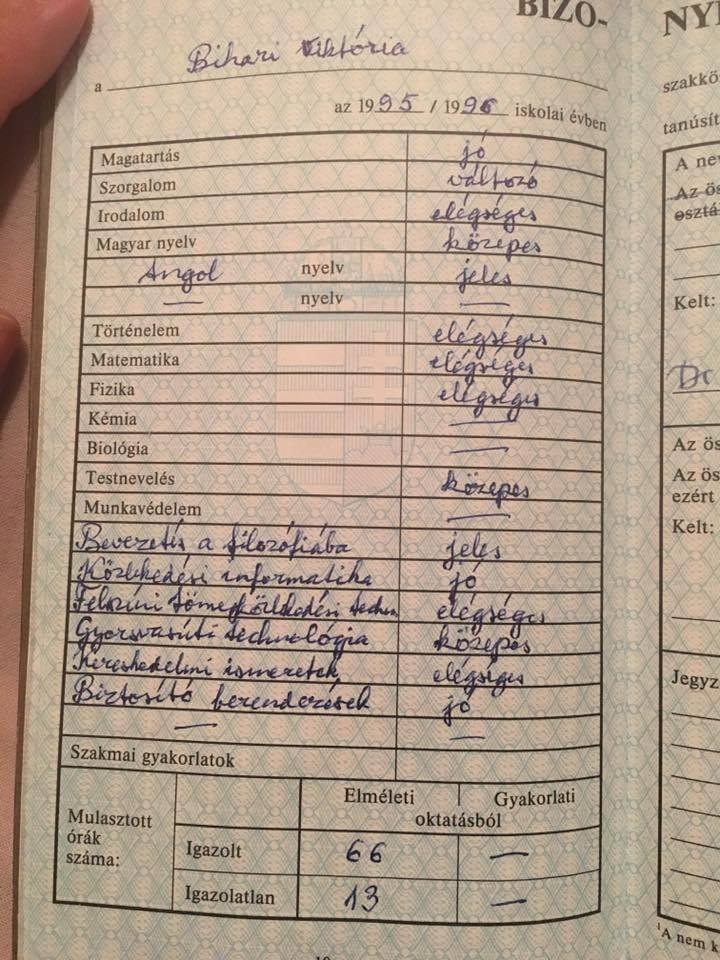 BIZO-
Bihari Viktória
a
az 1995 / 1996 iskolai évben
Magatartás jó
Szorgalom változó
Irodalom elégséges
Magyar nyelv közepes
Angol nyelv jeles
— nyelv —
Történelem elégséges
Matematika elégséges
Fizika elégséges
Kémia —
Biológia —
Testnevelés közepes
Munkavédelem —
Bevezetés a filozófiába jeles
Közlekedési informatika jó
Felszíni tömegközlekedési techn elégséges
Gyorsvasúti technológia közepes
Kereskedelmi ismeretek elégséges
Biztosító berendezések jó
— —
Szakmai gyakorlatok
Mulasztott órák száma:
Elméleti Gyakorlati
oktatásból
Igazolt 66 —
Igazolatlan 13 —
NY
szakkö
tanúsít
A ne
Az ös
osztá
Kelt:
Dr
Az ös
Az ös
ezért
Kelt:
Jegyz
¹A nem k